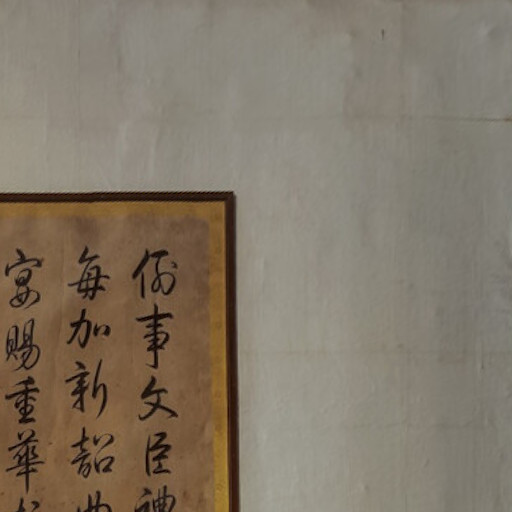 例事文臣禮
每加新韶典
宴賜重華